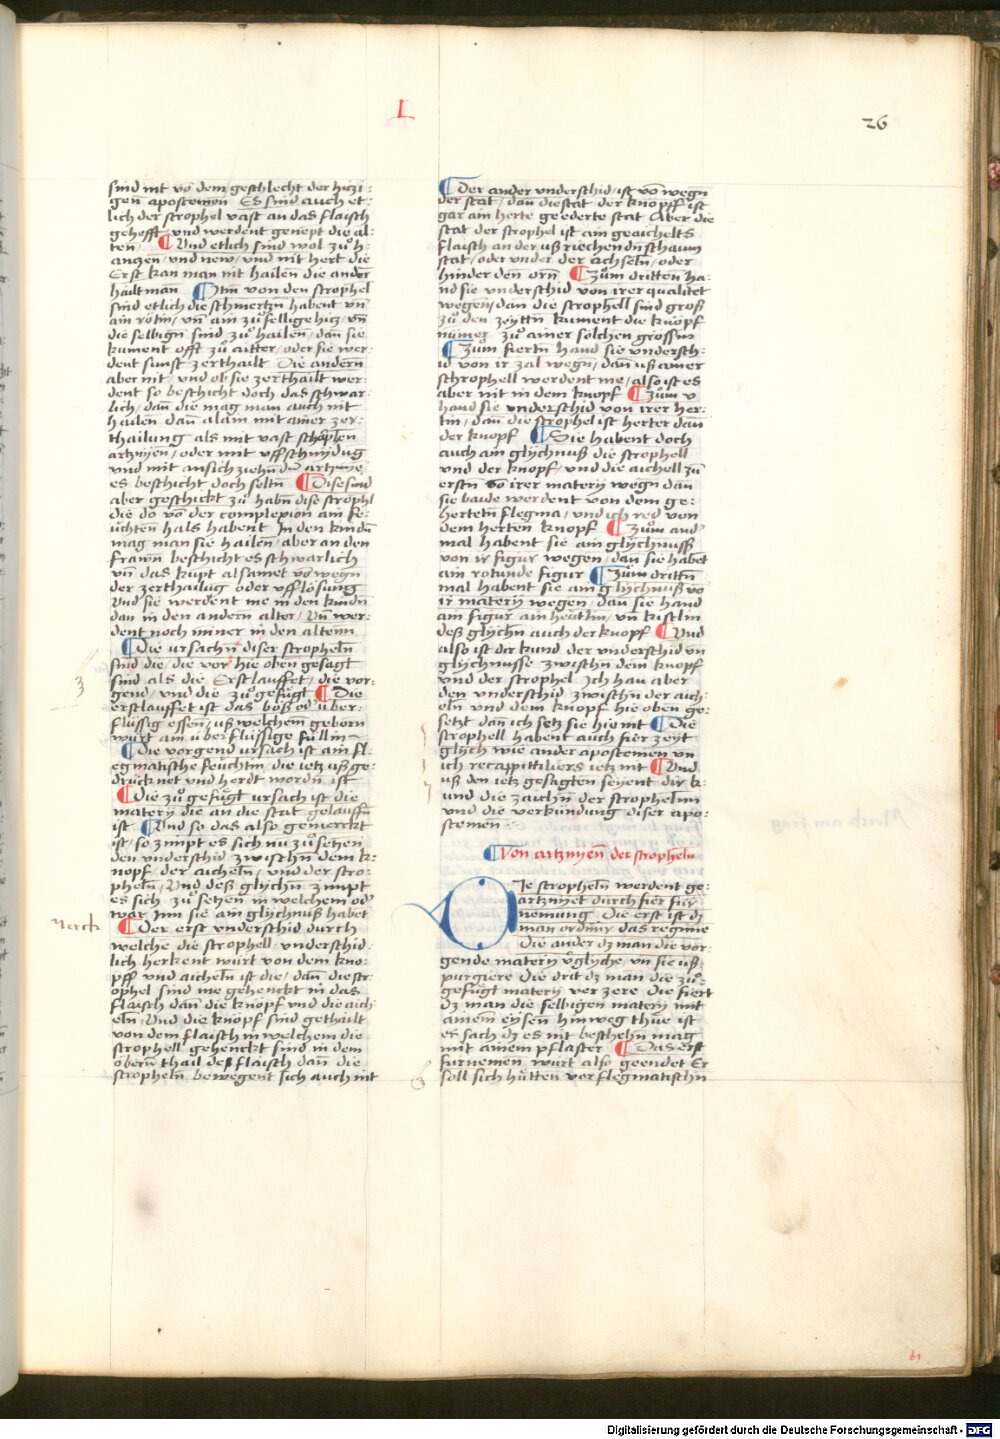 L
26
sind nit vō dem geschlecht der hiczi:
gen apostemen Es sind auch et:
lich der strophel vast an das flaisch
gehefft / vnd werdent genopt die al:
ten / ¶ Vnd etlich sind wol zůh:
angen / vnd new / vnd nit hert die
Erst kan man nit hailen die ander
hailt man ¶ Itm von den strophel
sind etlich die schmertzn habent vn̄
ain rötin / vn̄ ain zůfellige hicz / vn̄
die selbign sind zů hailen / dan̄ sie
kument offt zů aitter / oder sie wer:
dent sunst zerthailt Die andern
aber nit / vnd ob sie zerthailt wer:
dent so beschicht doch das schwar:
lich / dan̄ die mag man auch nit
hailen dan̄ alain mit ainer zer:
thailung als mit vast scharpfen
artznyen / oder mit vffschnydūg
vnd mit ansichziehndn̄ artznye
es beschicht doch seltn̄ ¶ Dise sind
aber geschickt zů habn̄ dise strophl
die do vō der complexion ain fe:
uchten hals habent In den kindn̄
mag man sie hailen / aber an den
frawn̄ beschicht es schwarlich
vn̄ das kupt alsamet vō wegn
der zerthailūg oder vfflösung
Vnd sie werdent me in den kindn̄
dan in den andern alter / Vn̄ wer:
dent noch miner in den altenn
¶ Die ursachn̄ diser strophel̄n
sind die / die vor hie oben gesagt
sind als die Erstlauffet / die vor:
gend / vnd die zůgefügt ¶ Die
erstlauffet ist das böß od' über:
flüssig essen̄ / uß welchem geborn
würt ain überflüssige füllin
¶ Die vorgend ursach ist ain fl:
egmatische feuchtin / die ietz uß ge:
drücknet vnd herdt wordn̄ ist
¶ Die zůgefügt ursach ist die
matery die an die stat gelauffn̄
ist ¶ Vnd so das also gemerckt
ist / so zimpt es sich nu zů setzen
den vnderschid zwischn dem k:
nopf / der aicheln̄ / vnd der stro:
pheln̄ / Vnd deß glychn̄ zimpt
es sich zů setzen in welchem od'
war Inn sie ain glychnuß habet
¶ Der erst vnderschid durch
welche die strophell / vnderschid:
lich herkent würt von dem kno:
pff vnd aicheln̄ ist die / dan̄ die str:
ophel sind me gehenckt in das
flaisch dan̄ die knöpf vnd die aich:
eln̄ / Vnd die knöpf sind gethailt
von dem flaisch in welchem die
strophell gehenckt sind in dem
obern̄ thail deß flaisch dan̄ die
stropheln̄ bewegent sich auch nit
3
merck
¶ Der ander vnderschid / ist vō wegn
der stat / dan̄ die stat der knöpff ist
gar ain herte geederte stat Aber die
stat der strophel ist ain geaichelts
flaisch an der uß riechendn̄ schaum
stat / oder vnder der achseln̄ / oder
hinder den orn̄ ¶ Zům dritten ha:
nd sie vnderschid von irer qualitet
wegen / dan die strophell sind groß
zů den zeyttn̄ kument die knöpf
nümer zů ainer sölchen grossin
¶ Zům fiertn̄ hand sie vndersch:
id von ir zal wegn̄ / dan̄ uß ainer
schrophell werdent me / also ist es
aber nit in dem knopf ¶ Zům v
hand sie vnderschid von irer her:
tin / dan̄ die strophel ist herter dan̄
der knopf ¶ Sie habent doch
auch ain glychnuß die strophell
vnd der knopf / vnd die aichell zů
erstn̄ vō irer matery wegn̄ dan̄
sie baide werdent von dem ge:
hertetn̄ flegma / vnd ich red von
dem herten knopf ¶ Zům and'
mal habent sie ain glychnuß
von ir figur wegen / dan̄ sie habet
ain rotunde figur ¶ Zům drittn̄
mal habent sie ain glychnuß vō
ir matery wegen / dan sie hand
ain figur ain heütlin / vn̄ kistlin
deß glychn̄ auch der knopf ¶ Vnd
also ist dir kund der vnderschid vn̄
glychnusse zwischn̄ dem knopf
vnd der strophel Ich han aber
den vnderschid zwischn̄ der aich:
eln̄ vnd dem knopf hie oben ge:
setzt dan̄ ich setz sie hie nit ¶ Die
strophell habent auch fier zeyt
glych wie ander apostemen vn̄
ich recapittiliers ietz nit ¶ Vnd
uß den ietz gesagten seyent dir k:
und die zaichn̄ der stropheln̄n
vnd die verkündung diser apo:
stemen
¶ Von artznyen̄ der stropheln̄
DIe stropheln̄ werdent ge:
artznyet durch fier für
nemung Die erst ist dz
man ordinir das regime
Die ander dz man die vor:
gende matery v̈glyche vn̄ sie uß:
purgiere Die drit dz man die zů:
gefügt matery ver zere Die fiert
dz man die selbigen matery mit
ainem eysen̄ hinweg thüe ist
es sach dz es nit beschehn̄ mag
mit ainem pflaster ¶ Das erst
fürnemen würt also geendet Er
soll sich hütten vor flegmatischn
61
Digitalisierung gefördert durch die Deutsche Forschungsgemeinschaft - DFG